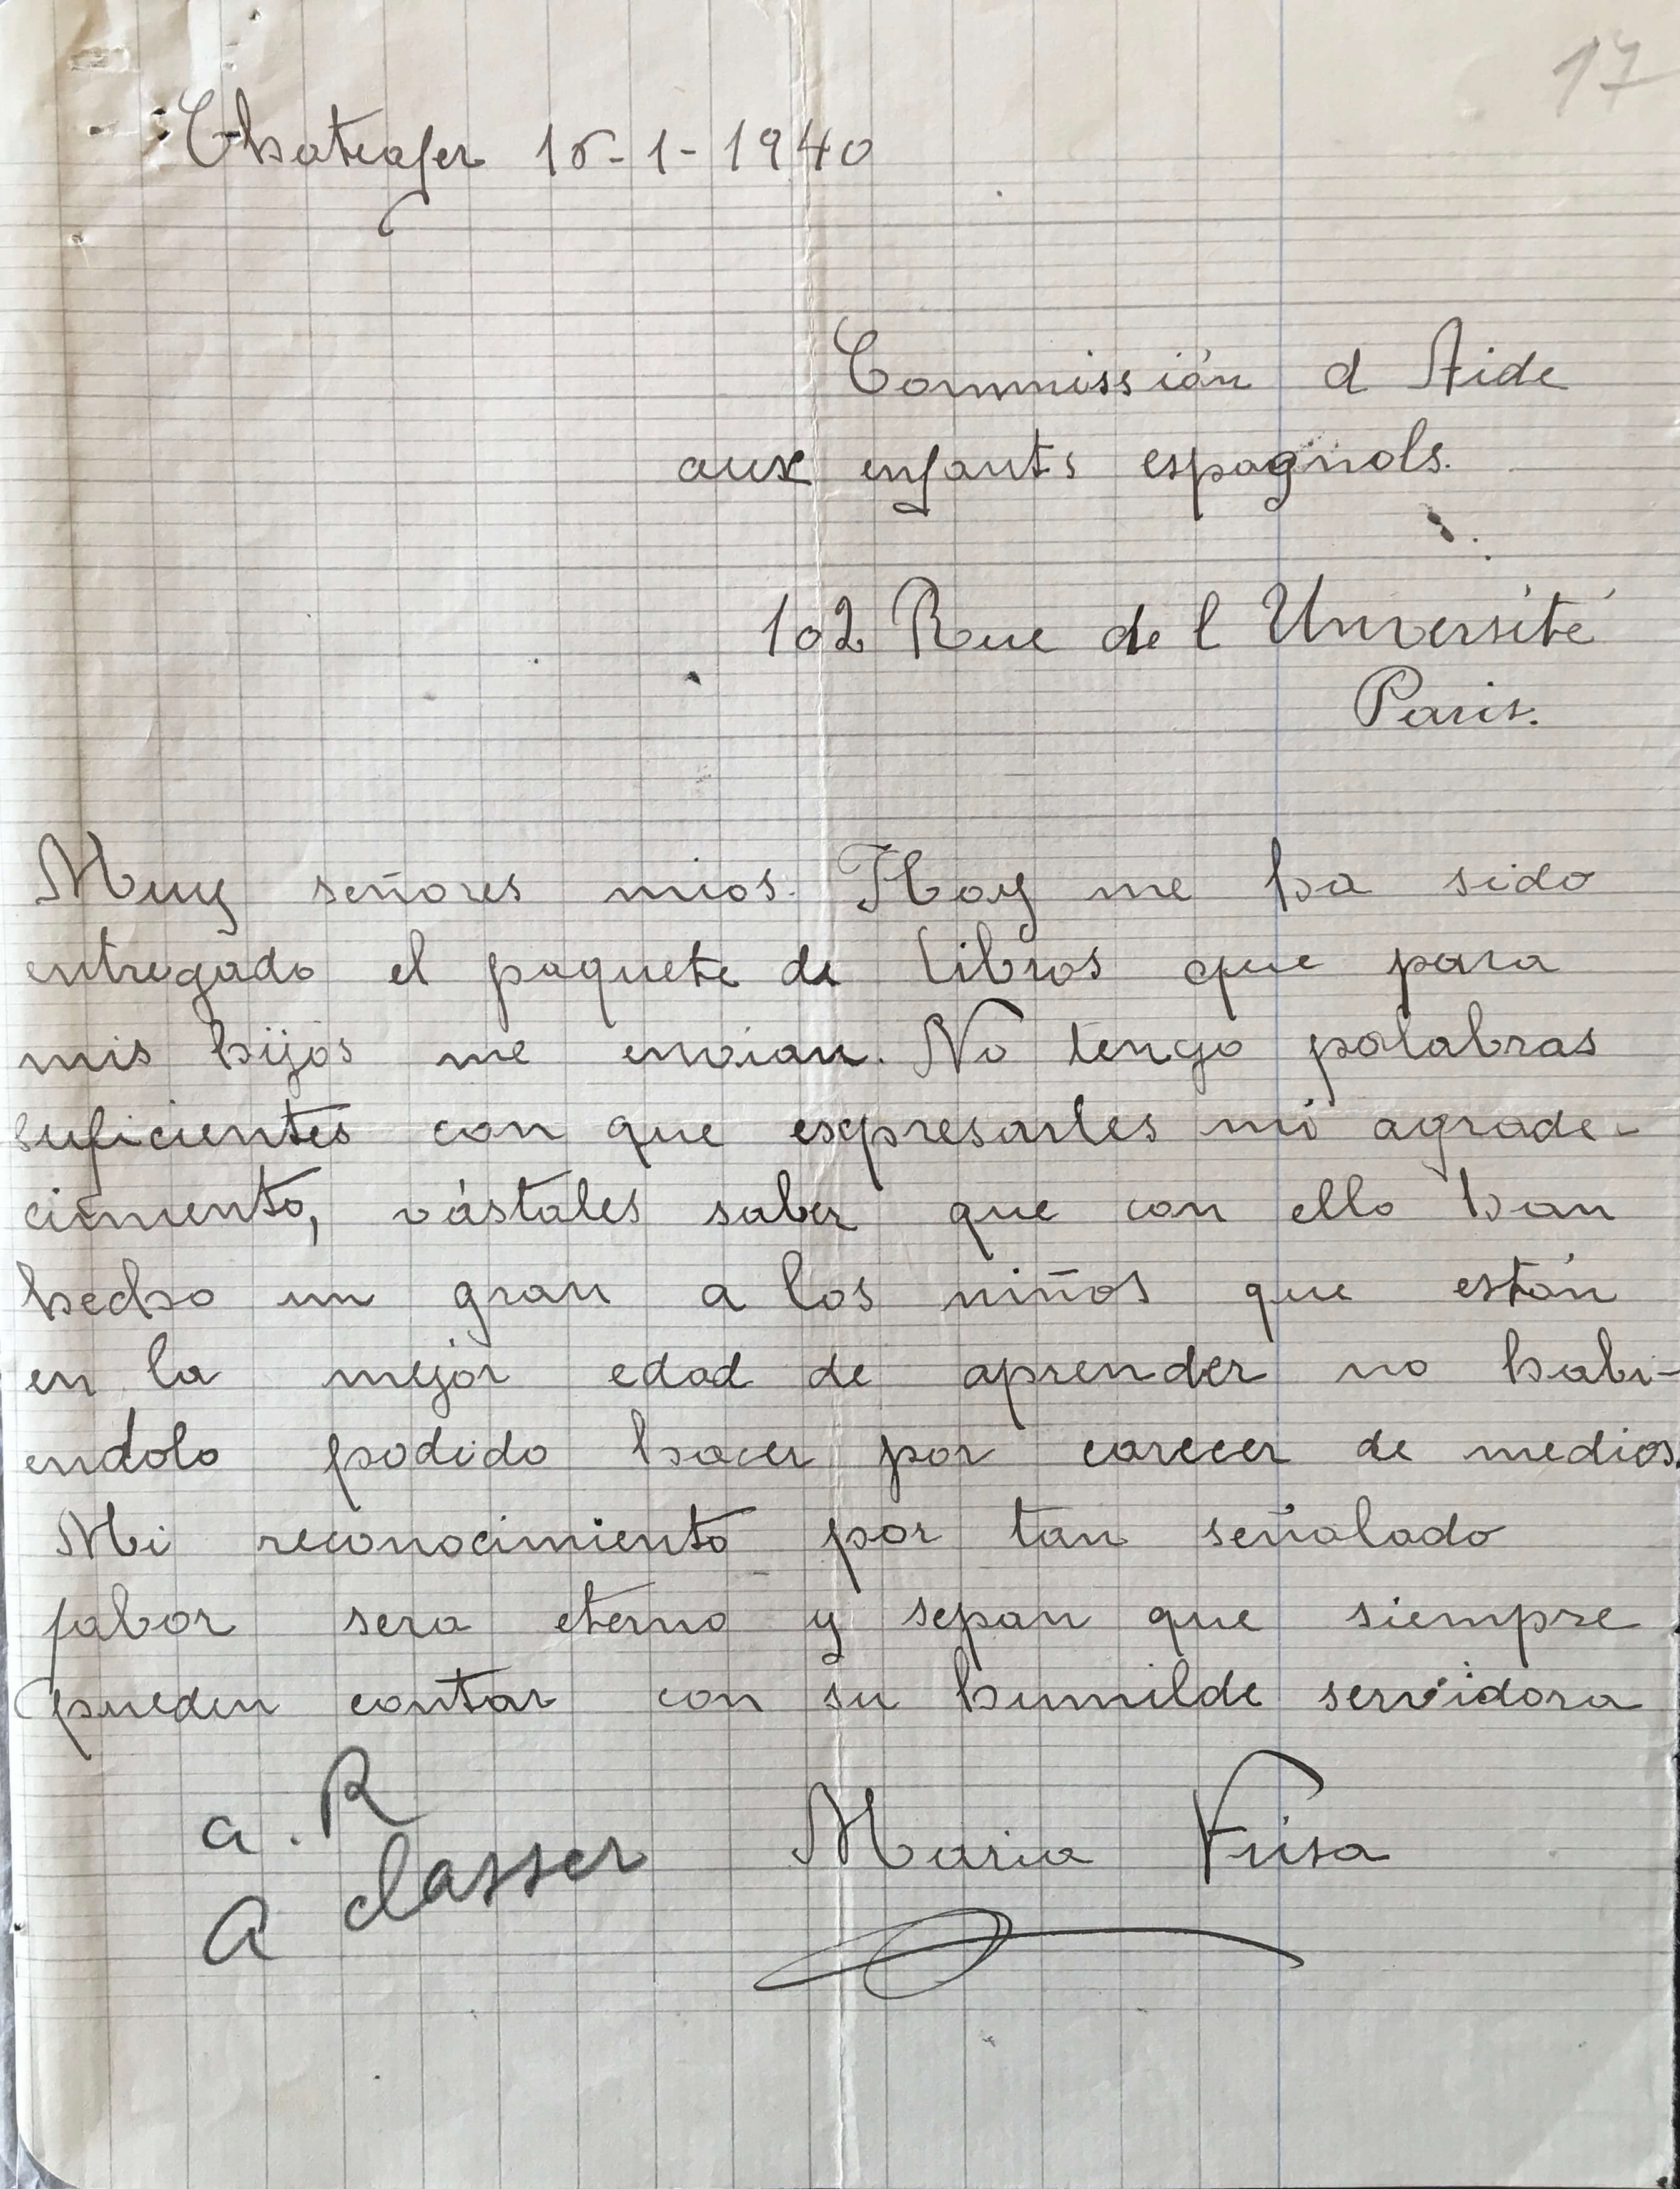 17
16-1-1940
Commissión d Aide
aux enfants espagnols.
102 Rue de l Université
Paris.
Muy señores mios. Hoy me ha sido
entregado el paquete de libros que para
mis hijos me envian. No tengo palabras
suficientes con que expresarles mi agrade-
cimiento, vástales saber que con ello han
hecho un gran a los niños que están
en la mejor edad de aprender no habi-
endolo podido hacer por carecer de medios.
Mi reconocimiento por tan señalado
fabor sera eterno y sepan que siempre
pueden contar con su humilde servidora
a. R
A classer
Maria Frisa